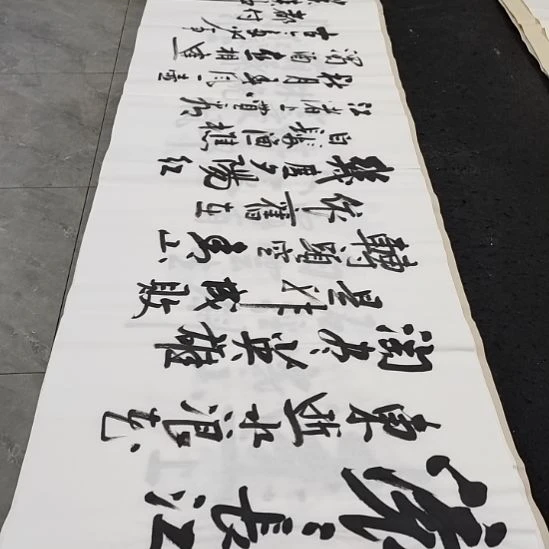 滚滚长江
東逝水浪花
淘尽英雄
是非成敗
轉頭空青山
依舊在
幾度夕陽紅
白髮漁樵
江渚上惯看
秋月春风一壶
濁酒喜相逢
古今多少事
都付